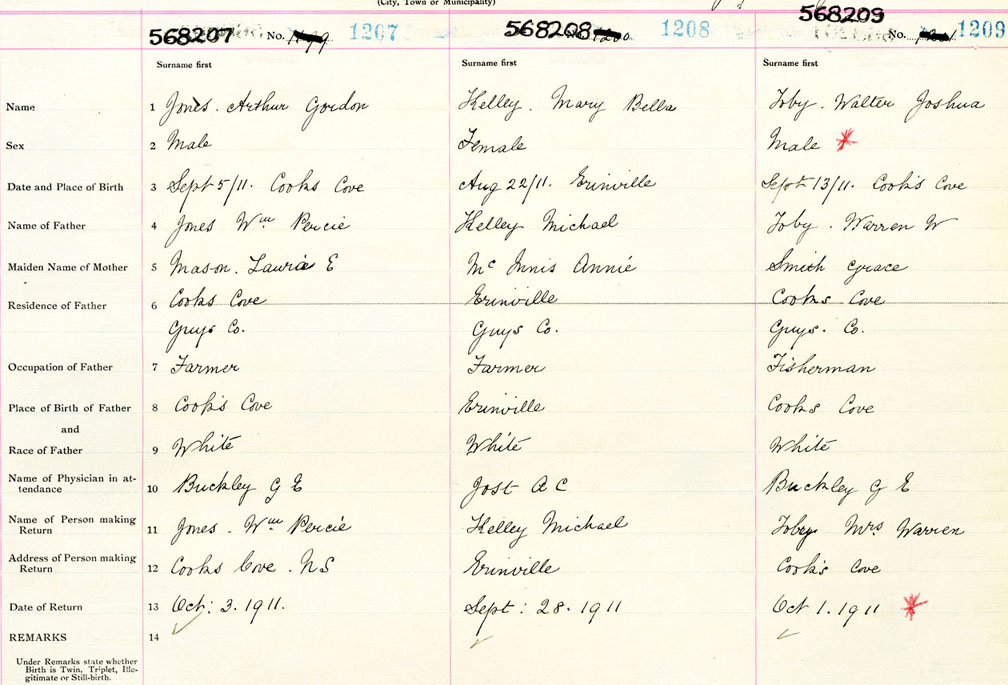 (City, Town or Municipality)
568207 No. 1207 568208 1208 568209 No. 1209
Surname first Surname first Surname first
Name 1 Jones. Arthur Gordon Kelley. Mary Bella Toby. Walter Joshua
Sex 2 Male Female Male
Date and Place of Birth 3 Sept 5/11. Cooks Cove Aug 22/11. Erinville Sept 13/11. Cook's Cove
Name of Father 4 Jones Wm Percie Kelley Michael Toby. Warren W
Maiden Name of Mother 5 Mason. Laurie E Mc Innis Annie Smith Grace
Residence of Father 6 Cooks Cove Erinville Cooks Cove
Guys Co. Guys Co. Guys. Co.
Occupation of Father 7 Farmer Farmer Fisherman
Place of Birth of Father 8 Cook's Cove Erinville Cooks Cove
and
Race of Father 9 White White White
Name of Physician in at-
tendance 10 Buckley G E Jost A C Buckley G E
Name of Person making
Return 11 Jones. Wm Percie Kelley Michael Toby Mrs Warren
Address of Person making
Return 12 Cooks Cove. N S Erinville Cook's Cove
Date of Return 13 Oct: 3. 1911. Sept: 28. 1911 Oct 1. 1911
REMARKS 14
Under Remarks state whether
Birth is Twin, Triplet, Ille-
gitimate or Still-birth.